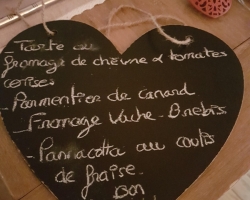 - Tarte au
fromage de chèvre & tomates
cerises
- Parmentier de canard
Fromage Vache - Brebis
- Pannacotta au coulis
de fraise.
Bon